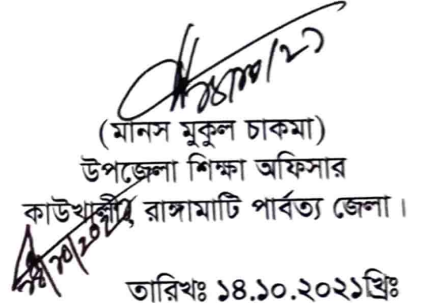 (মানস মুকুল চাকমা)
উপজেলা শিক্ষা অফিসার
কাউখালী, রাঙ্গামাটি পার্বত্য জেলা।
তারিখঃ ১৪.১০.২০২১খ্রিঃ